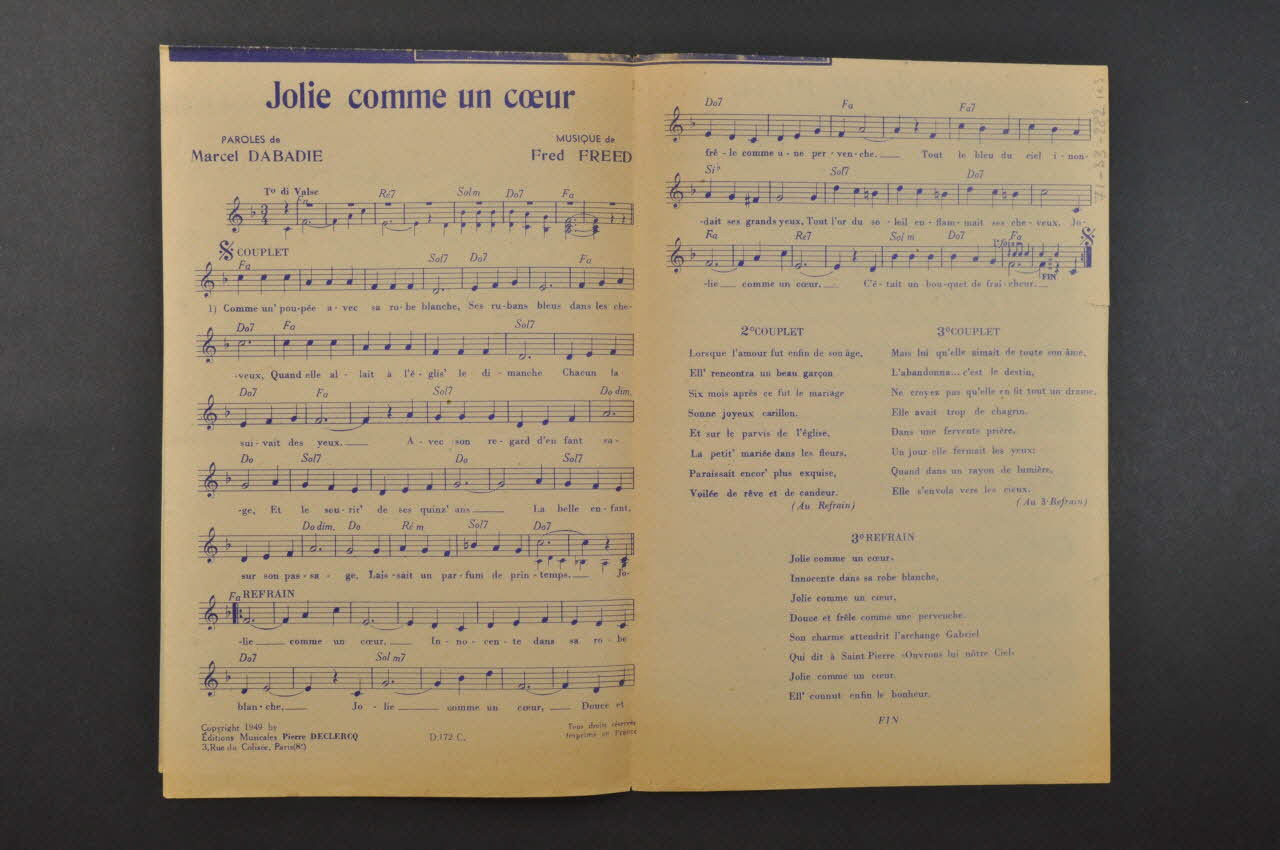 Jolie comme un cœur
PAROLES de
Marcel DABADIE
MUSIQUE de
Fred FREED
Tº di Valse
Fa Ré7 Solm Do7 Fa
COUPLET
Fa Sol7 Do7 Fa
1) Comme un' pou-pée a-vec sa ro-be blanche, Ses ru-bans bleus dans les che-
Do7 Fa Sol7
-veux, Quand elle al-lait à l'é-glis' le di-manche Chacun la
Do7 Fa Sol7 Do dim.
sui-vait des yeux. A-vec son re-gard d'en fant sa-
Do Sol7 Do Sol7
-ge, Et le sou-rir' de ses quinz' ans La belle en-fant,
Do dim. Do Ré m Sol7 Do7
sur son pas-sa-ge, Lais-sait un par-fum de prin-temps. Jo-
Fa REFRAIN
-lie comme un cœur, In-no-cen-te dans sa ro-be
Do7 Sol m7
blan-che, Jo-lie uomme un cœur, Douce et
Copyright 1949 by
Éditions Musicales Pierre DECLERCQ
3, Rue du Colisée, Paris(8e)
D.172 C.
Tous droits réservés
Imprimé en France
Do7 Fa Fa7
frê-le comme u-ne per-ven-che. Tout le bleu du ciel i-non-
Sib Sol7 Do7
-dait ses grands yeux, Tout l'or du so-leil en-flam-mait ses che-veux. Jo-
Fa Ré7 Sol m Do7 1º fois Fa
FIN
-lie comme un cœur, C'é-tait un bou-quet de fraî-cheur.
2º COUPLET
Lorsque l'amour fut enfin de son âge,
Ell' rencontra un beau garçon
Six mois après ce fut le mariage
Sonne joyeux carillon.
Et sur le parvis de l'église,
La petit' mariée dans les fleurs,
Paraissait encor' plus exquise,
Voilée de rêve et de candeur.
(Au Refrain)
3º COUPLET
Mais lui qu'elle aimait de toute son âme,
L'abandonna... c'est le destin,
Ne croyez pas qu'elle en fit tout un drame,
Elle avait trop de chagrin.
Dans une fervente prière,
Un jour elle fermait les yeux:
Quand dans un rayon de lumière,
Elle s'envola vers les cieux.
(Au 3e Refrain)
3º REFRAIN
Jolie comme un cœur,
Innocente dans sa robe blanche,
Jolie comme un cœur,
Douce et frêle comme une pervenche.
Son charme attendrit l'archange Gabriel
Qui dit à Saint Pierre «Ouvrons lui nôtre Ciel»
Jolie comme un cœur.
Ell' connut enfin le bonheur.
FIN